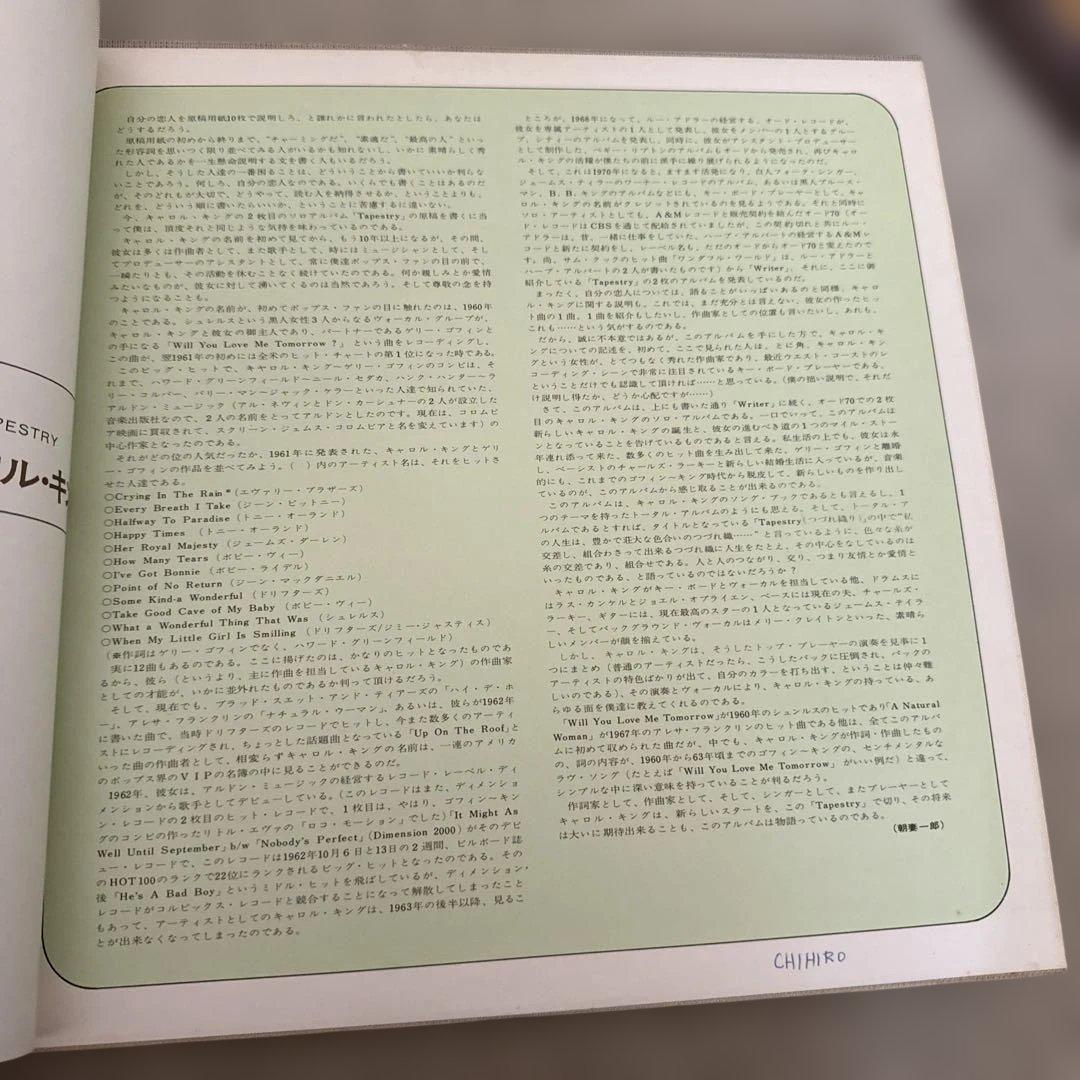 PESTRY
ル・キ
自分の恋人を原稿用紙10枚で説明しろ、と誰れかに言われたとしたら、あなたは
どうするだろう。
原稿用紙の初めから終りまで、“チャーミングだ”、“素適だ”、“最高の人”といっ
た形容詞を思いつく限り並べてみる人がいるかも知れないし、いかに素晴らしく秀
れた人であるかを一生懸命説明する文を書く人もいるだろう。
しかし、そうした人達の一番困ることは、どういうことから書いていいか判らな
いことだろう。何しろ、自分の恋人なのである。いくらでも書くことはあるのだ
が、そのどれもが大切で、どうやって、読む人を納得させるか、ということよりも、
どれを、どういう順に書いたらいいか、ということに苦慮するに違いない。
今、キャロル・キングの2枚目のソロアルバム「Tapestry」の原稿を書くに当
って僕は、頂度それと同じような気持を味わっているのである。
キャロル・キングの名前を初めて見てから、もう10年以上になるが、その間、
彼女は多くは作曲者として、また歌手として、時にはミュージシャンとして、そし
てプロデューサーのアシスタントとして、常に僕達ポップス・ファンの目の前で、
一瞬たりとも、その活動を休むことなく続けていたのである。何か親しみとか愛情
みたいなものが、彼女に対して湧いてくるのは当然であろう。そして尊敬の念を持
つようになることも。
キャロル・キングの名前が、初めてポップス・ファンの目に触れたのは、1960年
のことである。シュレルスという黒人女性3人からなるヴォーカル・グループが、
キャロル・キングと彼女の御主人であり、パートナーであるゲリー・ゴフィンと
の手になる「Will You Love Me Tomorrow?」という曲をレコーディングし、
この曲が、翌1961年の初めには全米のヒット・チャートの第1位になった時である。
このビッグ・ヒットで、キャロル・キング〜ゲリー・ゴフィンのコンビは、そ
れまで、ハワード・グリーンフィールド〜ニール・セダカ、ハンク・ハンター〜ラ
リー・コルバー、バリー・マン〜ジャック・ケラーといった人達で知られていた、
アルドン・ミュージック（アル・ネヴィンとドン・カーシュナーの2人が設立した
音楽出版社なので、2人の名前をとってアルドンとしたのです。現在は、コロムビ
ア映画に買収されて、スクリーン・ジェムス・コロムビアと名を変えています）の
中心作家となったのである。
それがどの位の人気だったか、1961年に発表された、キャロル・キングとゲリ
ー・ゴフィンの作品を並べてみよう。（ ）内のアーティスト名は、それをヒットさ
せた人達である。
○Crying In The Rain＊（エヴァリー・ブラザーズ）
○Every Breath I Take（ジーン・ピットニー）
○Halfway To Paradise（トニー・オーランド）
○Happy Times（トニー・オーランド）
○Her Royal Majesty（ジェームズ・ダーレン）
○How Many Tears（ボビー・ヴィー）
○I've Got Bonnie（ボビー・ライデル）
○Point of No Return（ジーン・マックダニエル）
○Some Kind-a Wonderful（ドリフターズ）
○Take Good Cave of My Baby（ボビー・ヴィー）
○What a Wonderful Thing That Was（シュレルス）
○When My Little Girl Is Smilling（ドリフターズ/ジミー・ジャスティス）
（※作詞はゲリー・ゴフィンでなく、ハワード・グリーンフィールド）
実に12曲もあるのである。ここに揚げたのは、かなりのヒットとなったものであ
るから、彼ら（というより、主に作曲を担当しているキャロル・キング）の作曲家
としての才能が、いかに並外れたものであるか判って頂けるだろう。
そして、現在でも、ブラッド・スエット・アンド・ティアーズの「ハイ・デ・ホ
ー」、アレサ・フランクリンの「ナチュラル・ウーマン」、あるいは、彼らが1962年
に書いた曲で、当時ドリフターズのレコードでヒットし、今また数多くのアーティ
ストにレコーディングされ、ちょっとした話題曲となっている「Up On The Roof」と
いった曲の作曲者として、相変らずキャロル・キングの名前は、一連のアメリカ
のポップス界のVIPの名簿の中に見ることができるのだ。
1962年、彼女は、アルドン・ミュージックの経営するレコード・レーベル・ディ
メンションから歌手としてデビューしている。（このレコードはまた、ディメンショ
ン・レコードの2枚目のヒット・レコードで、1枚目は、やはり、ゴフィン〜キン
グのコンビの作ったリトル・エヴァの「ロコ・モーション」でした）「It Might As
Well Until September」b/w「Nobody's Perfect」(Dimension 2000) がそのデビ
ュー・レコードで、このレコードは1962年10月6日と13日の2週間、ビルボード誌
のHOT100のランクで22位にランクされるビッグ・ヒットとなったのである。その
後「He's A Bad Boy」というミドル・ヒットを飛ばしているが、ディメンション・
レコードがコルピックス・レコードと競合することになって解散してしまったこと
もあって、アーティストとしてのキャロル・キングは、1963年の後半以降、見るこ
とが出来なくなってしまったのである。
ところが、1968年になって、ルー・アドラーの経営する、オード・レコードが、
彼女を専属アーティストの1人として発表し、彼女をメンバーの1人とするグルー
プ、シティーのアルバムを発表し、同時に、彼女がアシスタント・プロデューサー
として制作した、ペギー・リプトンのアルバムもオードから発売され、再びキャロ
ル・キングの活躍が僕たちの前に派手に繰り展げられるようになったのだ。
そして、これは1970年になると、ますます活発になり、白人フォーク・シンガー、
ジェームス・テイラーのワーナー・レコードのアルバム、あるいは黒人ブルース・
マン、B.B.キングのアルバムなどにも、キー・ボード・プレーヤーとして、キャ
ロル・キングの名前がクレジットされているのを見るようである。それと同時に
ソロ・アーティストとしても、A&Mレコードと販売契約を結んだオード70（オー
ド・レコードはCBSを通じて配給されていましたが、この契約切れと共にルー・
アドラーは、昔、一緒に仕事をしていた、ハーブ・アルバートの経営するA&Mレ
コードと新たに契約をし、レーベル名も、ただのオードからオード70と変えたので
す。尚、サム・クックのヒット曲「ワンダフル・ワールド」は、ルー・アドラーと
ハーブ・アルバートの2人が書いたものです）から「Writer」、それに、ここに御
紹介している「Tapestry」の2枚のアルバムを発表しているのだ。
まったく、自分の恋人については、語ることがいっぱいあるのと同様、キャロ
ル・キングに関する説明も、これでは、まだ充分とは言えない、彼女の作ったヒッ
ト曲の1曲、1曲を紹介もしたいし、作曲家としての位置も言いたいし、あれも、
これも……という気がするのである。
だから、誠に不本意ではあるが、このアルバムを手にした方で、キャロル・キ
ングについての記述を、初めて、ここで見られた人は、とに角、キャロル・キン
グという女性が、とてつもなく秀れた作曲家であり、最近ウエスト・コーストのレ
コーディング・シーンで非常に注目されているキー・ボード・プレーヤーである、
ということだけでも認識して頂ければ……と思っている。（僕の拙い説明で、それだ
け説明し得たか、どうか心配ですが……）
さて、このアルバムは、上にも書いた通り「Writer」に続く、オード70での2枚
目のキャロル・キングのソロ・アルバムである。一口でいって、このアルバムは
新らしいキャロル・キングの誕生と、彼女の進むべき道の1つのマイル・ストー
ンとなっていることを告げているものであると言える。私生活の上でも、彼女は永
年連れ添って来た、数多くのヒット曲を生み出して来た、ゲリー・ゴフィンと離婚
し、ベーシストのチャールズ・ラーキーと新しい結婚生活に入っているが、音楽
的にも、これまでのゴフィン〜キング時代から脱皮して、新しいものを作り出し
ているのが、このアルバムから感じ取ることが出来るのである。
このアルバムは、キャロル・キングのソング・ブックであるとも言えるし、1
つのテーマを持ったトータル・アルバムのようにも思える。そして、トータル・ア
ルバムであるとすれば、タイトルとなっている「Tapestry（つづれ織り）」の中で“私
の人生は、豊かで荘大な色合いのつづれ織……”と言っているように、色々な糸が
交差し、組合わさって出来るつづれ織に人生をたとえ、その中心をなしているのは
糸の交差であり、組合せである。人と人のつながり、交り、つまり友情とか愛情と
いったものである、と語っているのではないだろうか？
キャロル・キングがキー・ボードとヴォーカルを担当している他、ドラムスに
はラス・カンケルとジョエル・オブライエン、ベースには現在の夫、チャールズ・
ラーキー、ギターには、現在最高のスターの1人となっているジェームス・テイラ
ー、そしてバックグラウンド・ヴォーカルはメリー・クレイトンといった、素晴ら
しいメンバーが顔を揃えている。
しかし、キャロル・キングは、そうしたトップ・プレーヤーの演奏を見事に1
つにまとめ（普通のアーティストだったら、こうしたバックに圧倒され、バックの
アーティストの特色ばかりが出て、自分のカラーを打ち出す、ということは仲々難
しいのである）、その演奏とヴォーカルにより、キャロル・キングの持っている、あ
らゆる面を僕達に教えてくれるのである。
「Will You Love Me Tomorrow」が1960年のシュンルスのヒットであり「A Natural
Woman」が1967年のアレサ・フランクリンのヒット曲である他は、全てこのアルバ
ムに初めて収められた曲だが、中でも、キャロル・キングが作詞・作曲したもの
の、詞の内容が、1960年から63年頃までのゴフィン〜キングの、センチメンタルな
ラヴ・ソング（たとえば「Will You Love Me Tomorrow」がいい例だ）と違って、
シンプルな中に深い意味を持っていることが判るだろう。
作詞家として、作曲家として、そして、シンガーとして、またプレーヤーとして
キャロル・キングは、新らしいスタートを、この「Tapestry」で切り、その将来
は大いに期待出来ることも、このアルバムは物語っているのである。
（朝妻一郎）
CHIHIRO